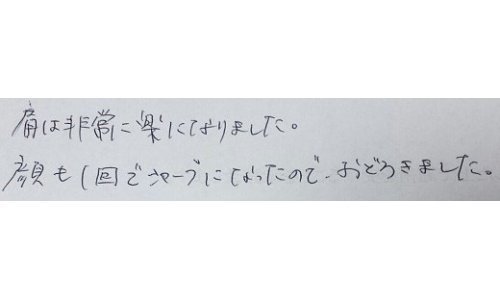 肩は非常に楽になりました。
顔も1回でシャープになったので、おどろきました。